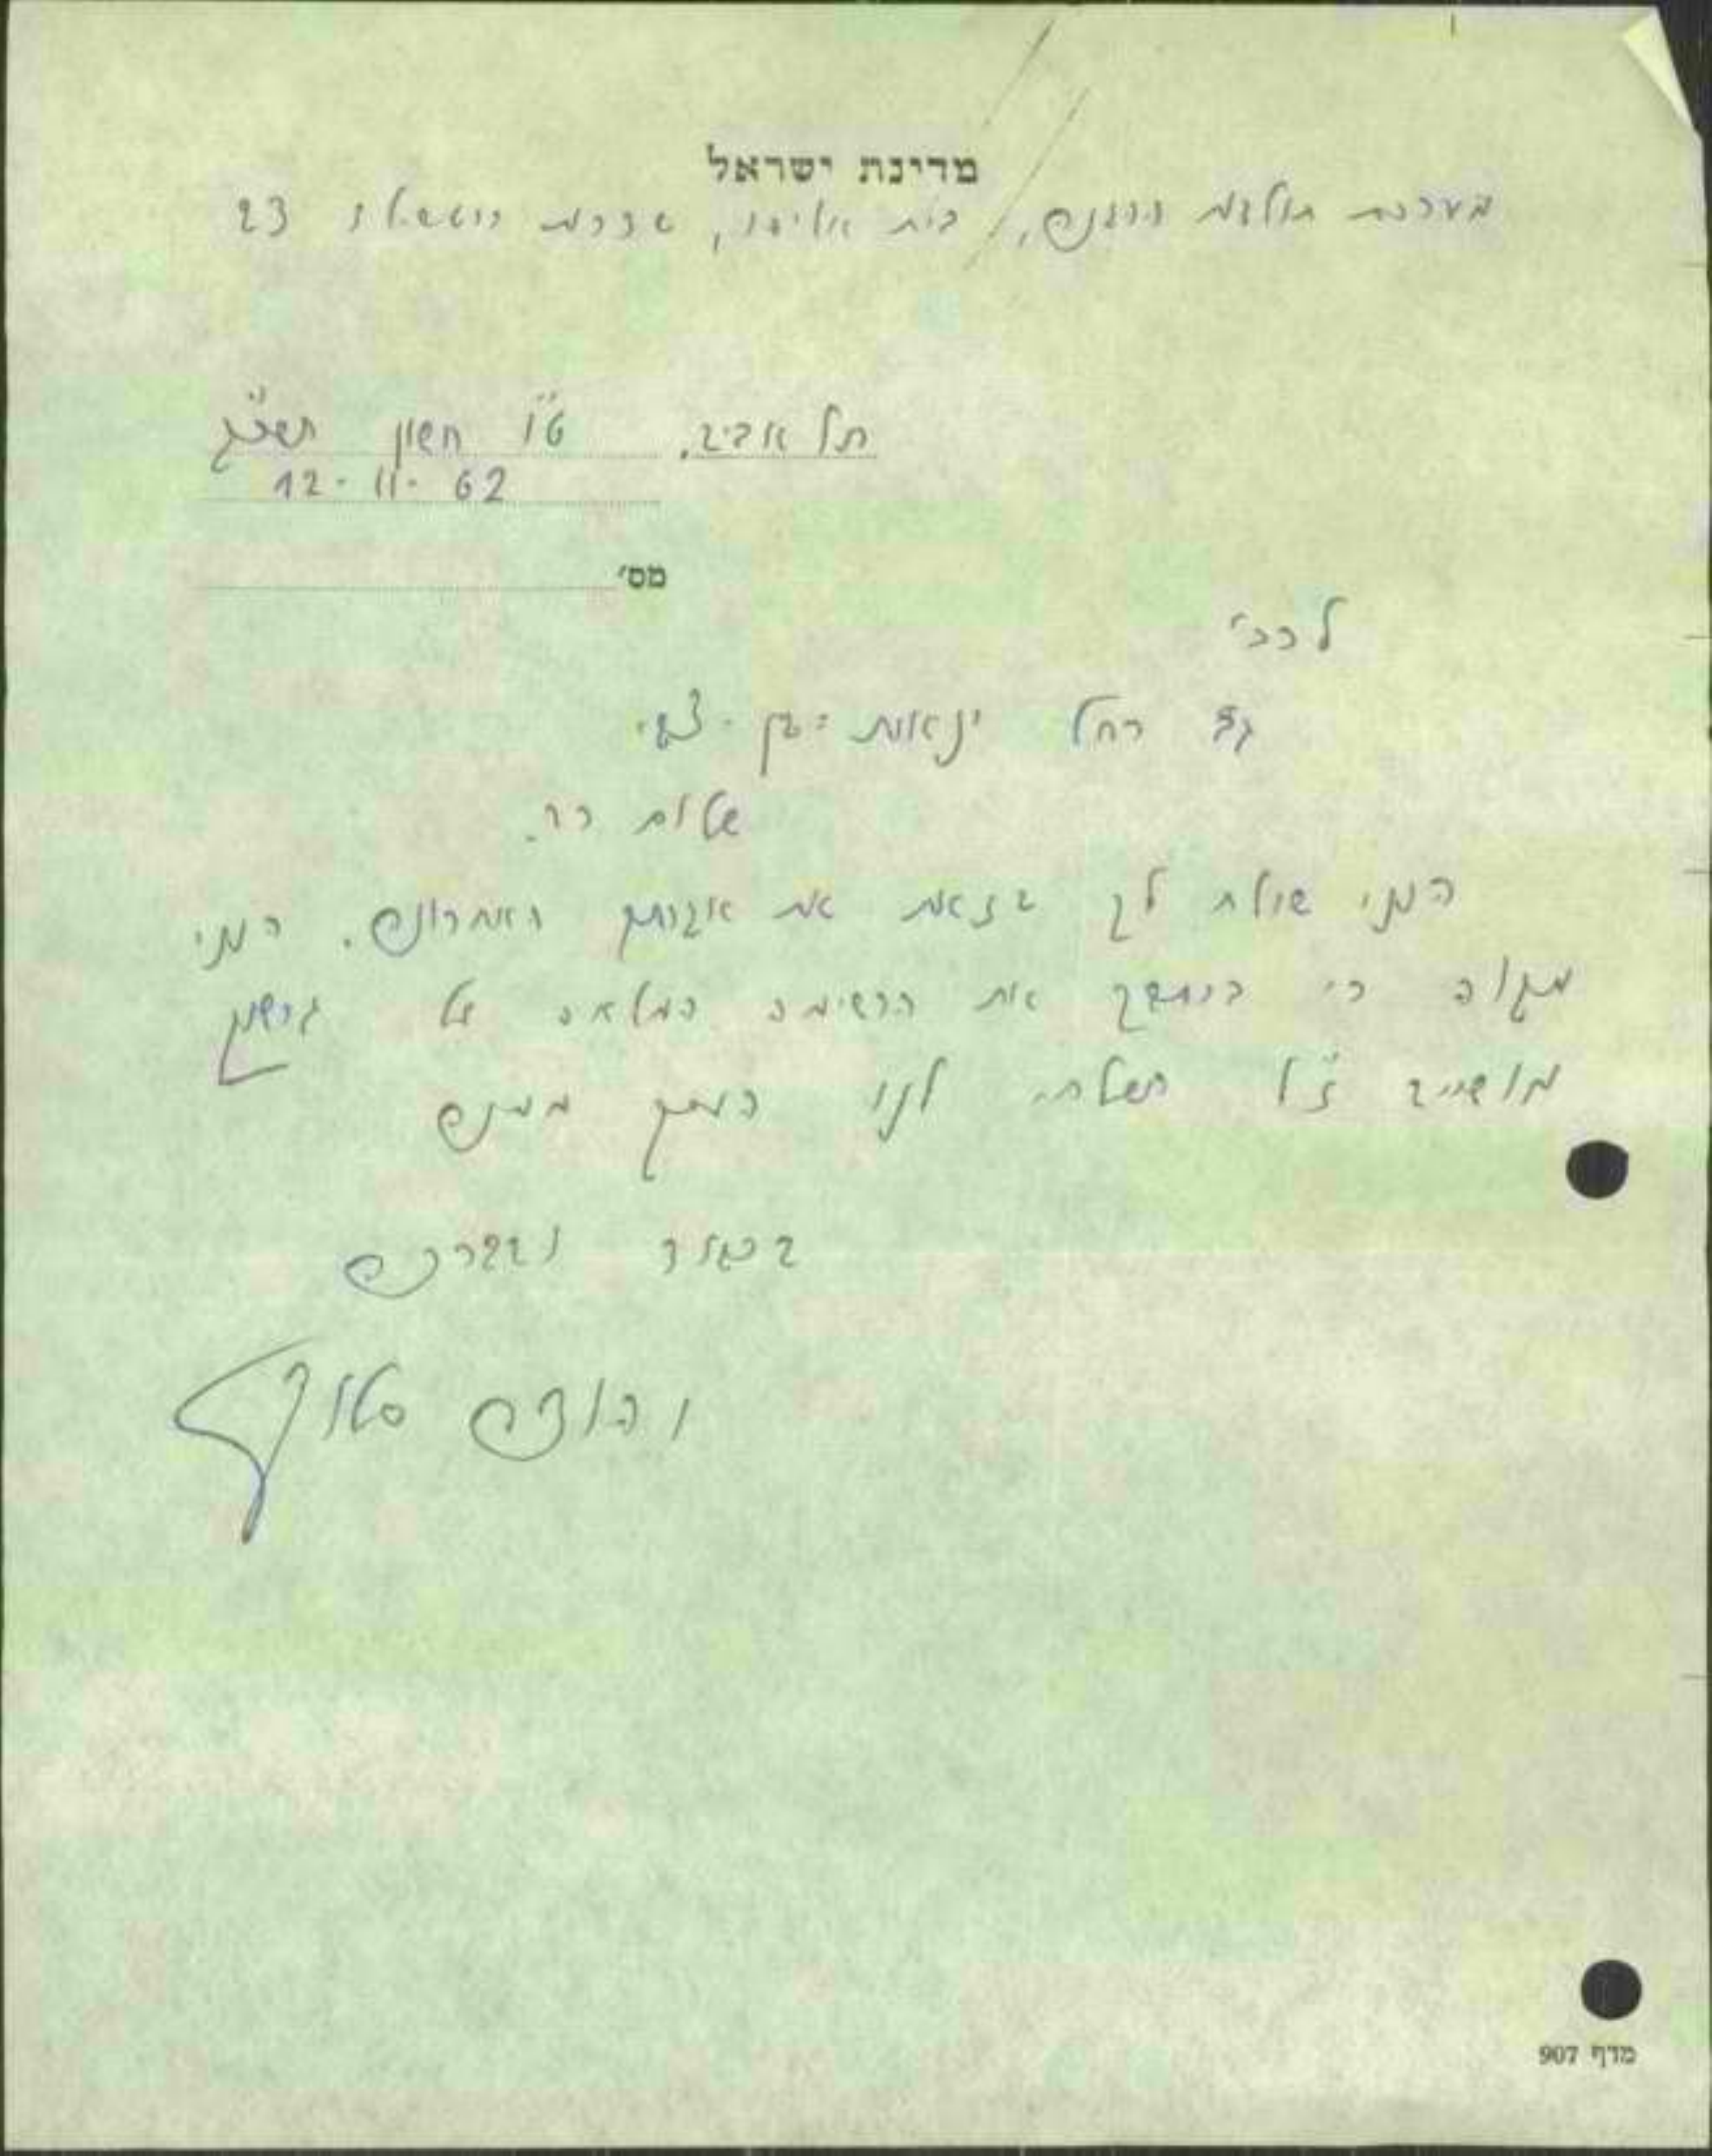 מדינת ישראל
מערכת תולדות ההגנה, בית אליהו, שדרות רוטשילד 23
תל אביב. ט"ו חשון תשכ"ג
12-11-62
מס'
לכב'
גב' רחל ינאית-בן-צבי.
שלום רב.
הנני שולח לך בזאת את אגרותיך האחרונות. הנני
מקוה כי בהמשך את הרשימה המלאה על
ז"ל תשלחי לנו העתק ממנה
בכבוד ובברכה
יהודה סלוצקי
מדף 907